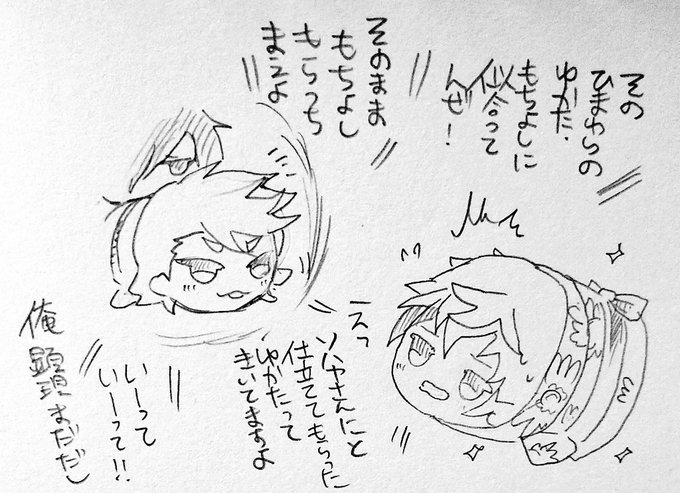 その
ひまわりの
ゆかた、
もちよしに
似合って
んぜ!
そのまま
もちよし
もらっち
まえよ
えっ
ソハヤさんにと
仕立ててもらった
ゆかたって
きいてますよ
いーって
いーって!!
俺顕現まだだし